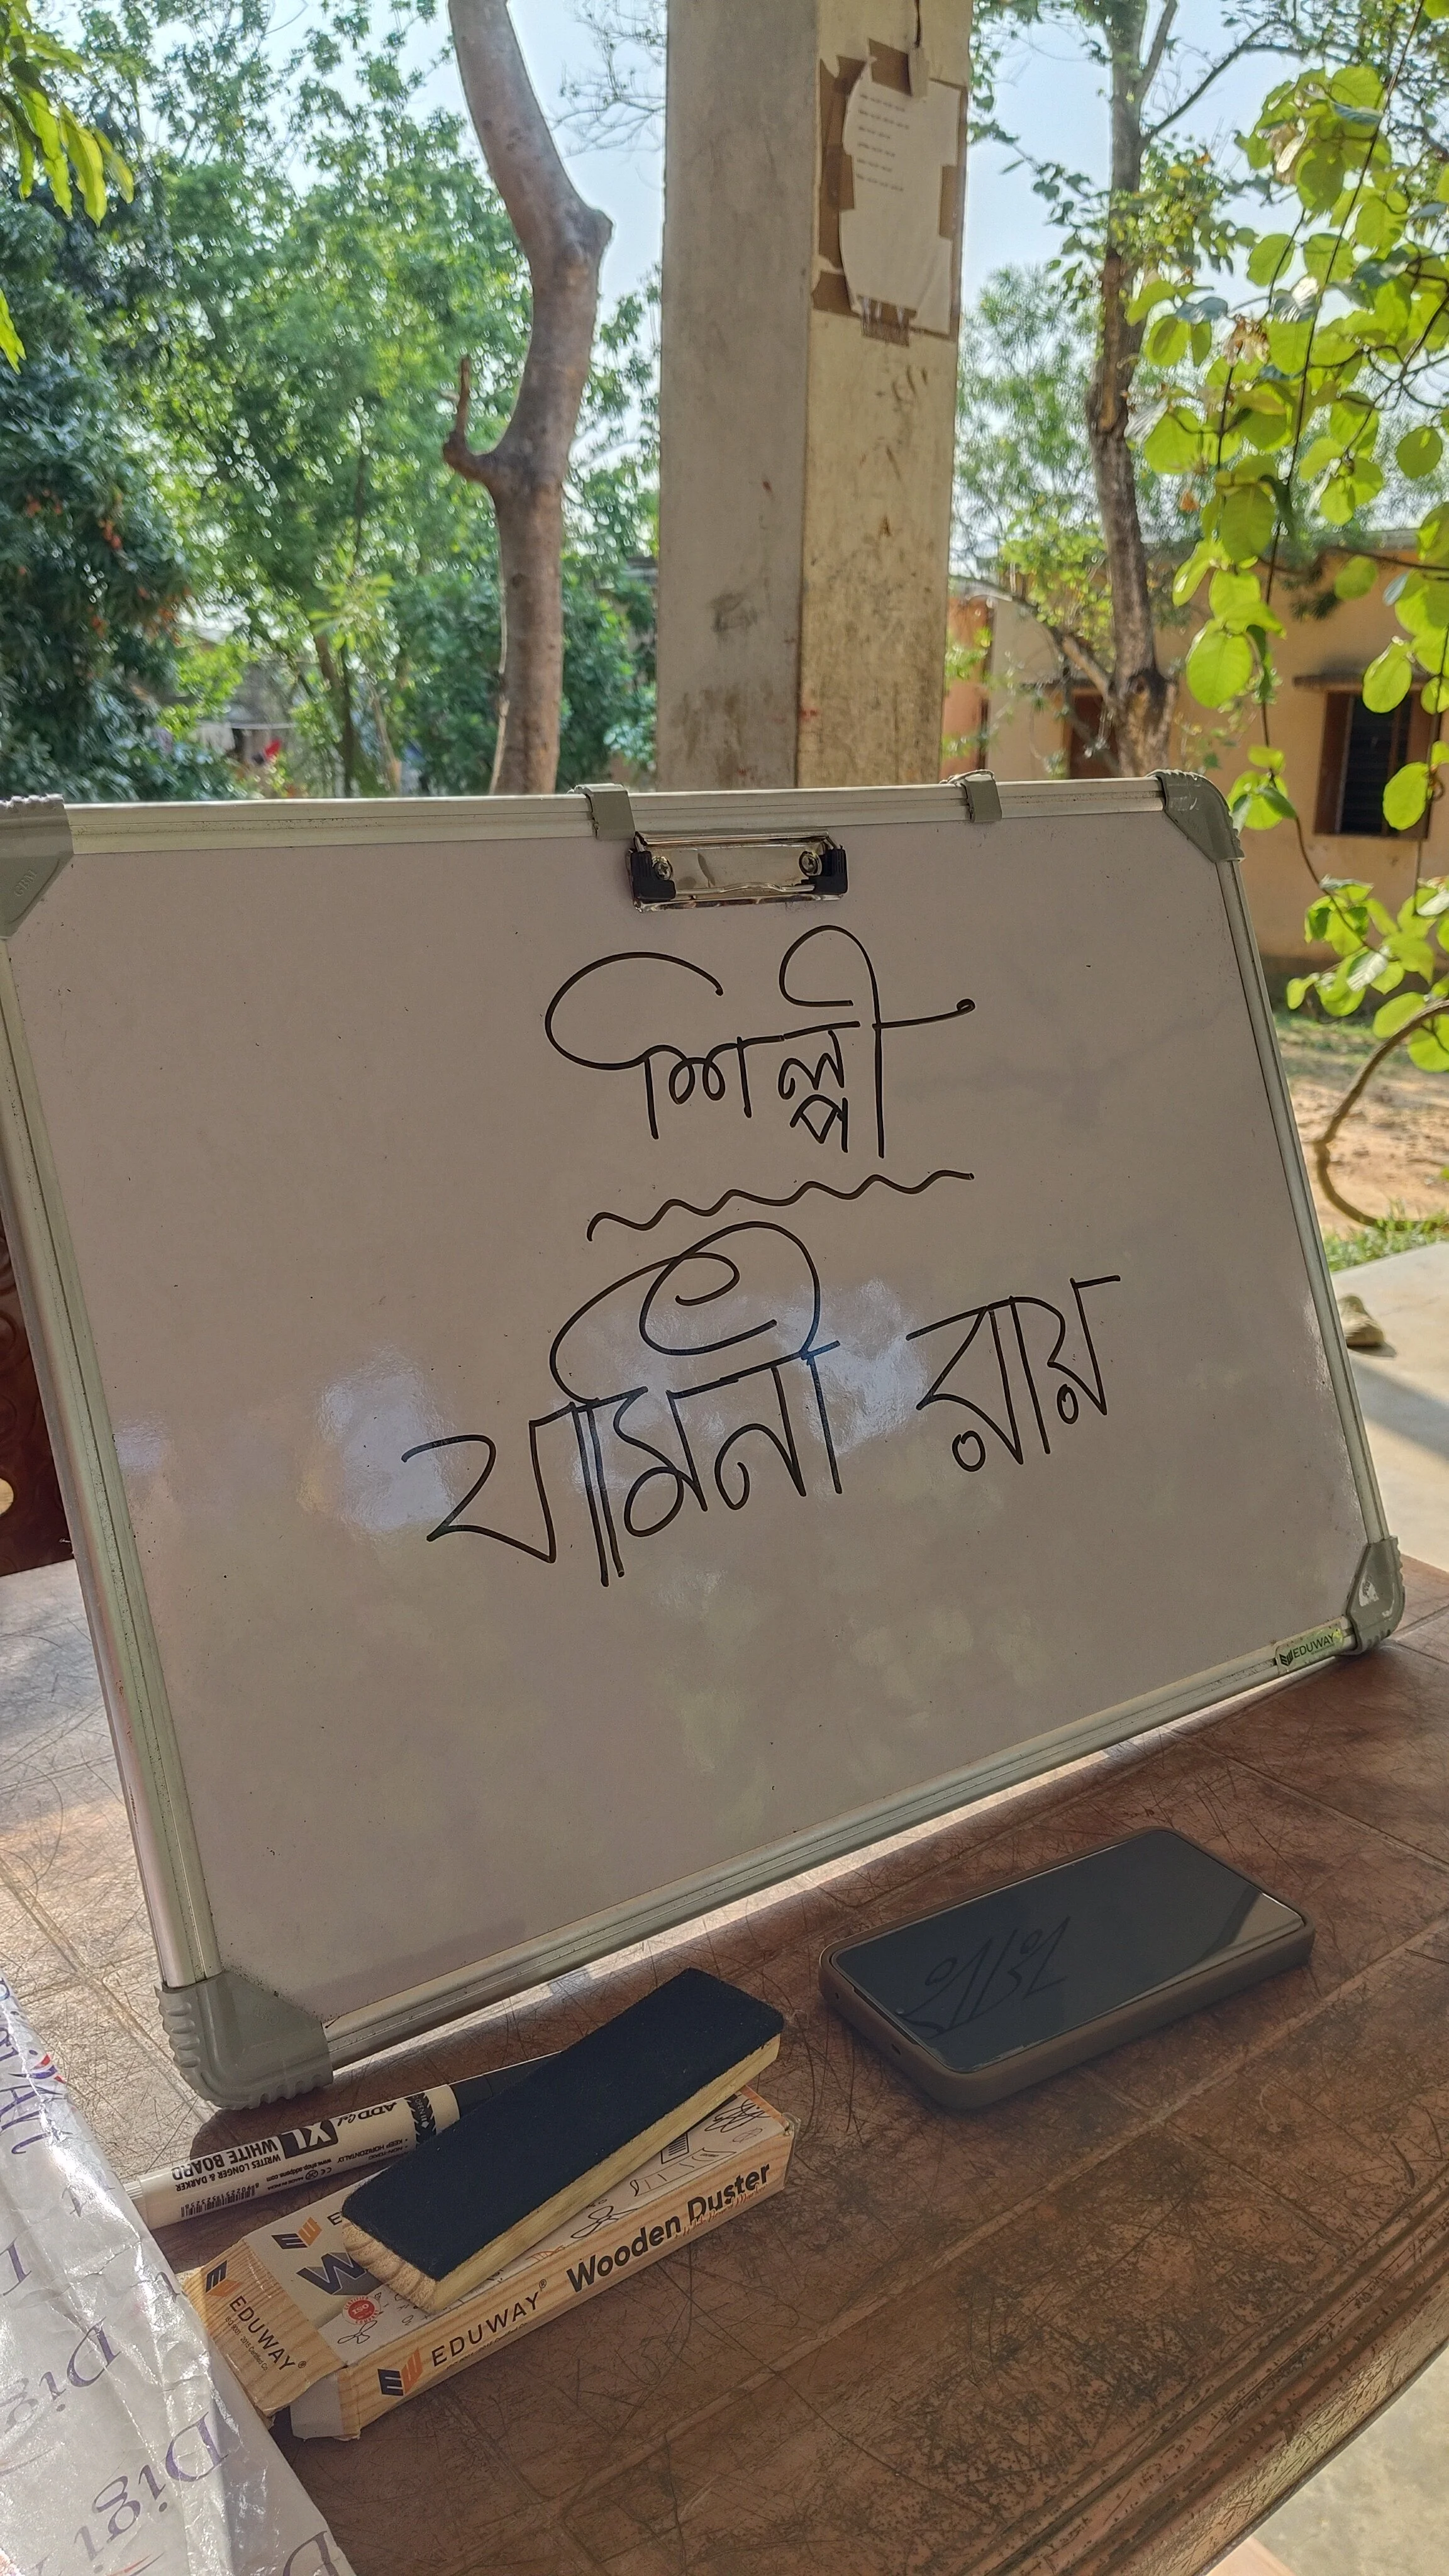 শিল্পী
যামিনী রায়
EDUWAY
ADD Gel
XL
WHITE BOARD
WRITES LONGER & DARKER
• KEEP HORIZONTALLY
EDUWAY®
EDUWAY® Wooden Duster
Digi
Digi